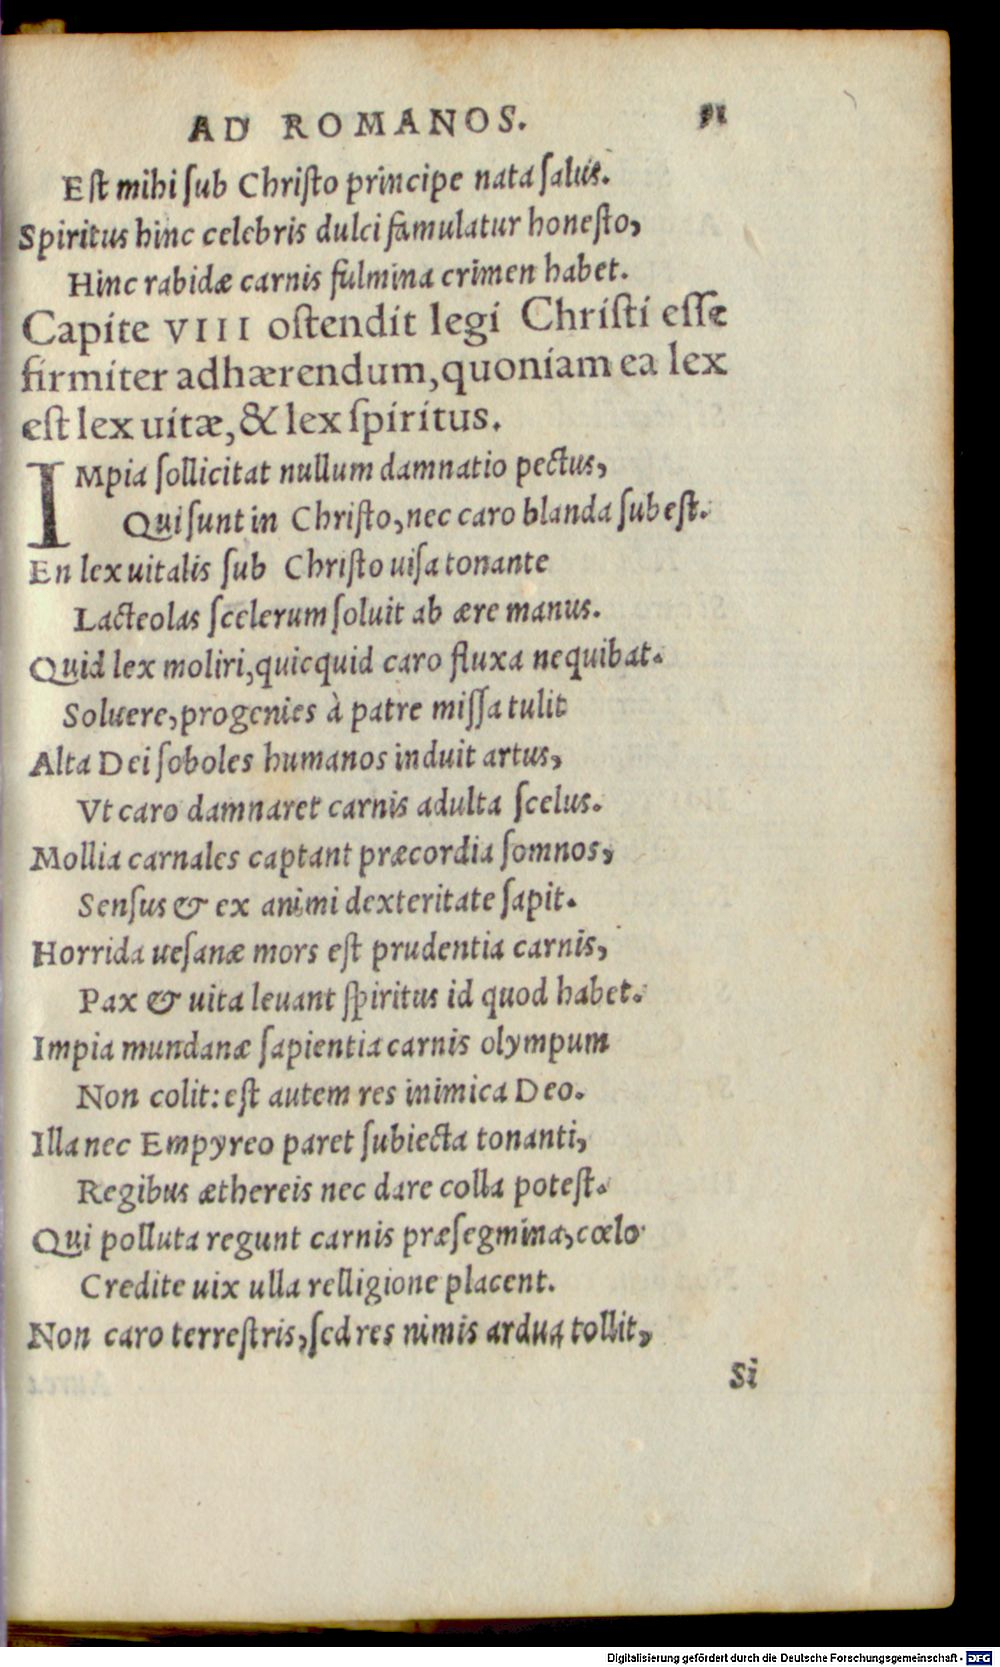 AD ROMANOS.
Est mihi sub Christo principe nata salus.
Spiritus hinc celebris dulci famulatur honesto,
Hinc rabidæ carnis fulmina crimen habet.
Capite VIII ostendit legi Christi esse
firmiter adhærendum, quoniam ea lex
est lex uitæ, & lex spiritus.
IMpia sollicitat nullum damnatio pectus,
Qui sunt in Christo, nec caro blanda subest.
En lex uitalis sub Christo uisa tonante
Lacteolas scelerum soluit ab ære manus.
Quid lex moliri, quicquid caro fluxa nequibat.
Soluere, progenies à patre missa tulit
Alta Dei soboles humanos induit artus,
Vt caro damnaret carnis adulta scelus.
Mollia carnales captant præcordia somnos,
Sensus & ex animi dexteritate sapit.
Horrida uesanæ mors est prudentia carnis,
Pax & uita leuant spiritus id quod habet.
Impia mundanæ sapientia carnis olympum
Non colit: est autem res inimica Deo.
Illa nec Empyreo paret subiecta tonanti,
Regibus æthereis nec dare colla potest.
Qui polluta regunt carnis præsegmina, cœlo
Credite uix ulla relligione placent.
Non caro terrestris, sed res nimis ardua tollit,
Si
Digitalisierung gefördert durch die Deutsche Forschungsgemeinschaft - DFG